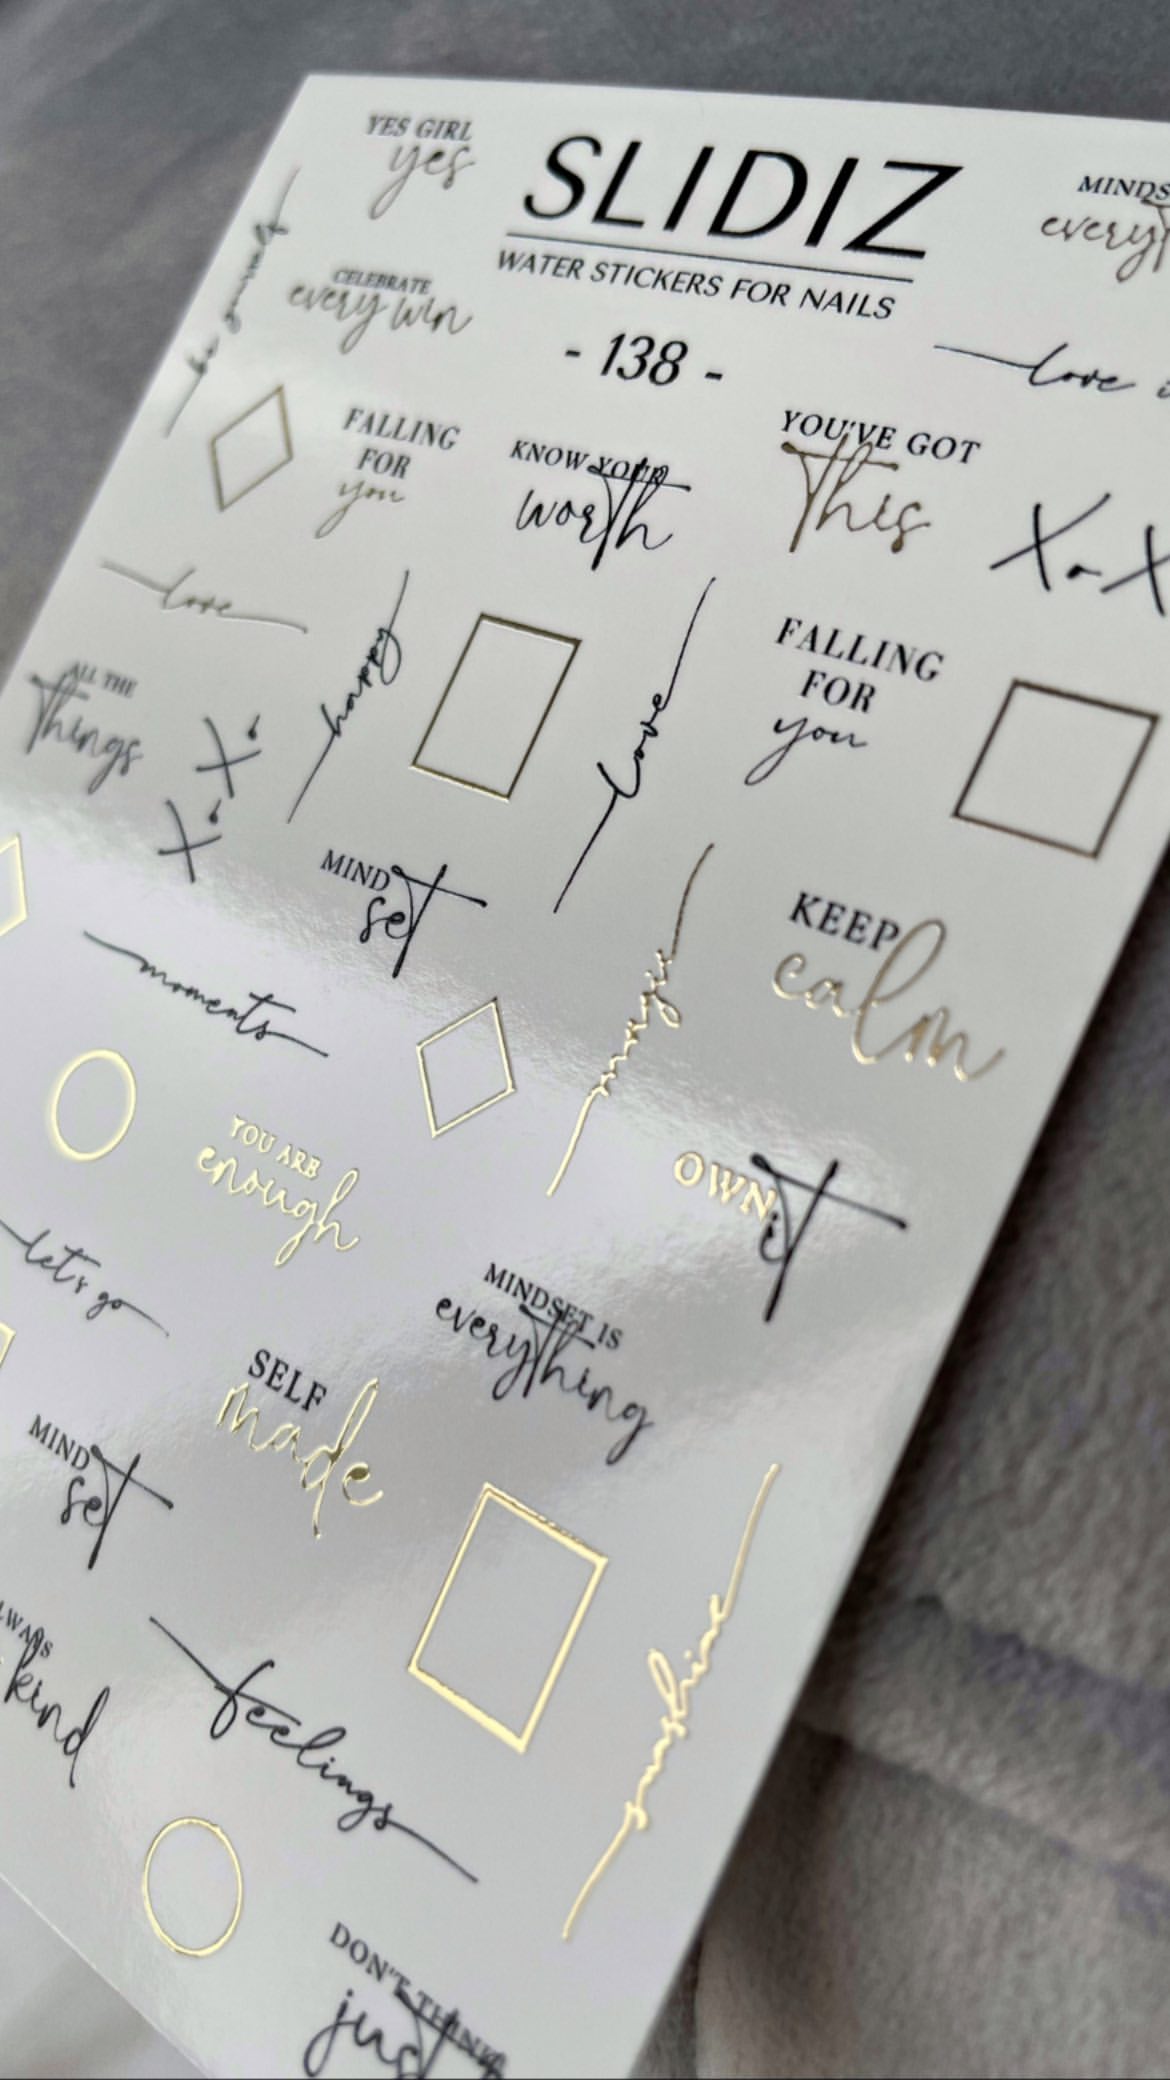 YES GIRL
yes
SLIDIZ
WATER STICKERS FOR NAILS
- 138 -
be yourself
CELEBRATE
every win
love
FALLING
FOR
you
KNOW YOUR
worth
YOU'VE GOT
This
XoX
love
happy
love
FALLING
FOR
you
ALL THE
Things
XoXo
MIND
set
KEEP
calm
moments
magic
YOU ARE
enough
OWN
it
let's go
MINDSET IS
everything
SELF
made
MIND
set
kind
feelings
sunshine
DON'T THINK
just